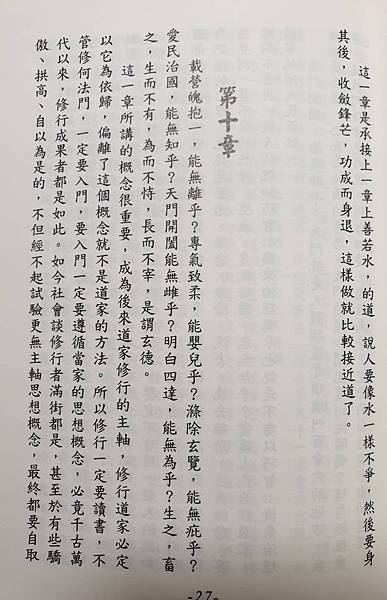 這一章是承接上一章上善若水，的道，說人要像水一樣不爭，然後要身
其後，收斂鋒芒，功成而身退，這樣做就比較接近道了。
第十章
載營魄抱一，能無離乎？專氣致柔，能嬰兒乎？滌除玄覽，能無疵乎？
愛民治國，能無知乎？天門開闔能無雌乎？明白四達，能無為乎？生之，畜
之，生而不有，為而不恃，長而不宰，是謂玄德。
這一章所講的概念很重要，成為後來道家修行的主軸，修行道家必定
以它為依歸，偏離了這個概念就不是道家的方法。所以修行一定要讀書，不
管修何法門，一定要入門，要入門一定要遵循當家的思想概念，必竟千古萬
代以來，修行成果者都是如此。如今社會談修行者滿街都是，甚至於有些驕
傲、拱高、自以為是的，不但經不起試驗更無主軸思想概念，最終都要自取
-27-